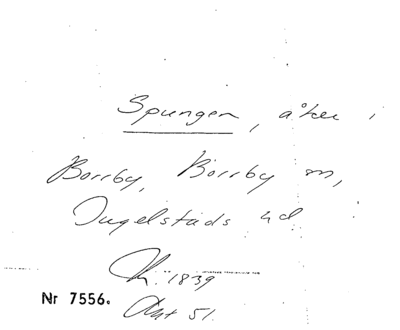 Spungen, åker i
Borrby, Borrby sn,
Ingelstads hd
K. 1839
Nr 7556.
Akt 51.